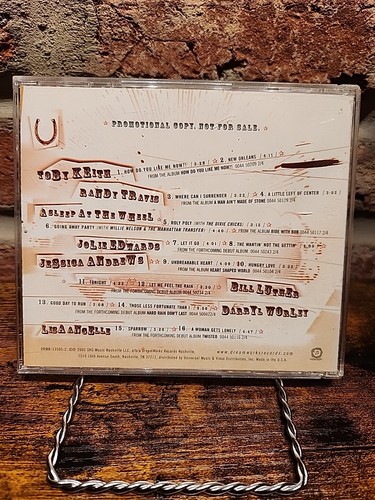 ☆ PROMOTIONAL COPY. NOT FOR SALE. ☆
TOBY KEITH 1. HOW DO YOU LIKE ME NOW?! / 3:28 / ☆ 2. NEW ORLEANS / 4:11 / ☆
FROM THE ALBUM HOW DO YOU LIKE ME NOW?! 0044 50209 2/4
RANDY TRAVIS 3. WHERE CAN I SURRENDER / 3:32 / ☆ 4. A LITTLE LEFT OF CENTER / 3:02 /
FROM THE ALBUM A MAN AIN'T MADE OF STONE 0044 50119 2/4
ASLEEP AT THE WHEEL 5. ROLY POLY (WITH THE DIXIE CHICKS) /
6. GOING AWAY PARTY (WITH WILLIE NELSON & THE MANHATTAN TRANSFER) / 4:40 / ☆ FROM THE ALBUM RIDE WITH BOB 0044 50117 2/4
JOLIE EDWARDS 7. LET IT GO / 4:01 / ☆ 8. THE WANTIN' NOT THE GETTIN'
JESSICA ANDREWS ☆ 9. UNBREAKABLE HEART / 4:08 / ☆ 10. HUNGRY LOVE / 3:02 /
FROM THE ALBUM HEART SHAPED WORLD 0044 50104 2/4
11. TONIGHT / 4:22 / ☆ 12. LET ME FEEL THE RAIN / BILL LUTHER
FROM THE FORTHCOMING DEBUT ALBUM
13. GOOD DAY TO RUN / 3:08 / ☆ 14. THOSE LESS FORTUNATE THAN I / DARRYL WORLEY
FROM THE FORTHCOMING DEBUT ALBUM HARD RAIN DON'T LAST
LISA ANGELLE 15. SPARROW / 3:28 / ☆ 16. A WOMAN GETS LONELY / 4:47 / ☆
FROM THE FORTHCOMING DEBUT ALBUM TWISTED
2000 SKG Music Nashville LLC, d/b/a DreamWorks Records Nashville, www.dreamworksrecords.com
1516 16th Avenue South, Nashville, TN 37212, distributed by Universal Music & Video Distribution, Inc. Made in the U.S.A.